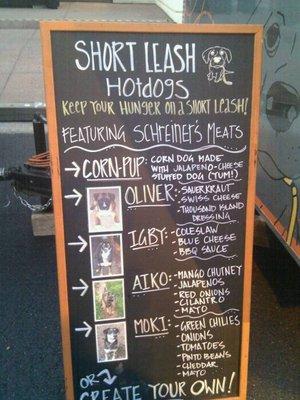 SHORT LEASH
HOTDOGS
KEEP YOUR HUNGER ON A SHORT LEASH!
FEATURING SCHREINER'S MEATS
→ CORN-PUP: CORN DOG MADE
WITH JALAPENO-CHEESE
STUFFED DOG (YUM!)
→ OLIVER: -SAUERKRAUT
-SWISS CHEESE
-THOUSAND ISLAND
DRESSING
→ IGBY: -COLESLAW
-BLUE CHEESE
-BBQ SAUCE
→ AIKO: -MANGO CHUTNEY
-JALAPEÑOS
-RED ONIONS
-CILANTRO
-MAYO
→ MOKI: -GREEN CHILIES
-ONIONS
-TOMATOES
-PINTO BEANS
-CHEDDAR
-MAYO
OR
CREATE YOUR OWN!